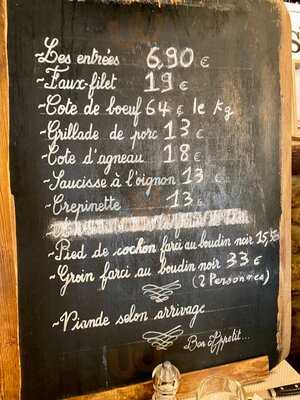 -Les entrées 6,90 €
-Faux-filet 19 €
-Cote de boeuf 64 € le kg
-Grillade de porc 13 €
-Cote d'agneau 18 €
-Saucisse à l'oignon 13 €
-Crepinette 13 €
-Pied de cochon farci au boudin noir 15,
-Groin farci au boudin noir 33 €
(2 Personnes)
-Viande selon arrivage
Bon Appetit...